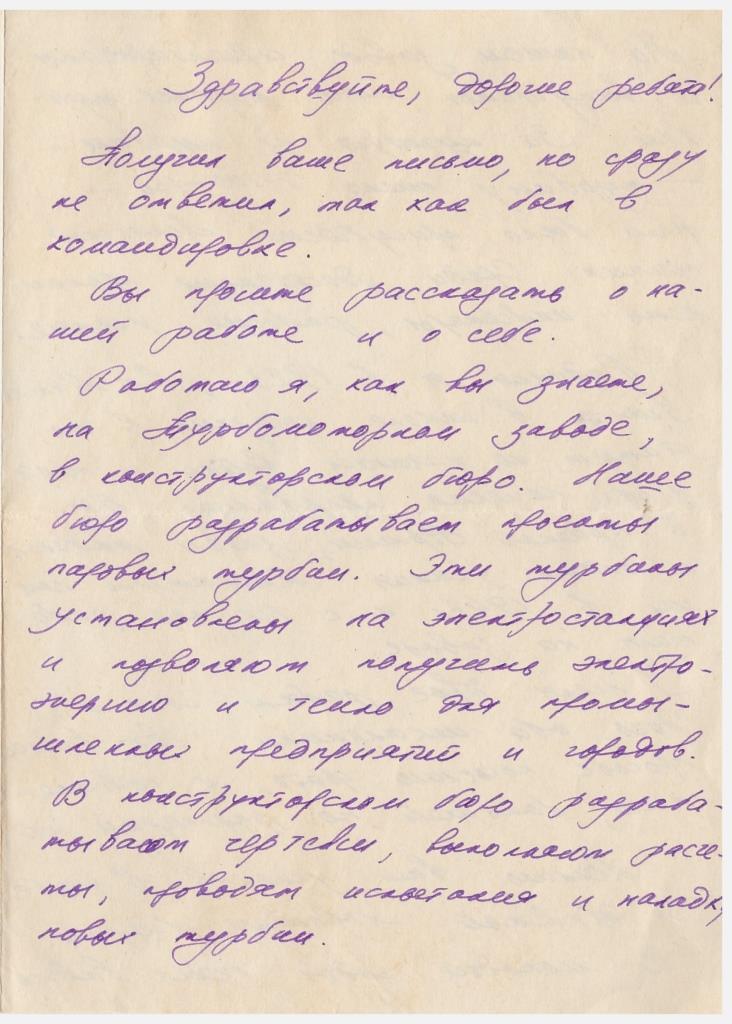 Здравствуйте, дорогие ребята!
Получил ваше письмо, но сразу
не ответил, так как был в
командировке.
Вы просите рассказать о на-
шей работе и о себе.
Работаю я, как вы знаете,
на Турбомоторном заводе,
в конструкторском бюро. Наше
бюро разрабатывает проекты
паровых турбин. Эти турбины
установлены на электростанциях
и позволяют получать электро-
энергию и тепло для промы-
шленных предприятий и городов.
В конструкторском бюро разраба-
тывают чертежи, выполняют расче-
ты, проводят испытания и наладку
новых турбин.